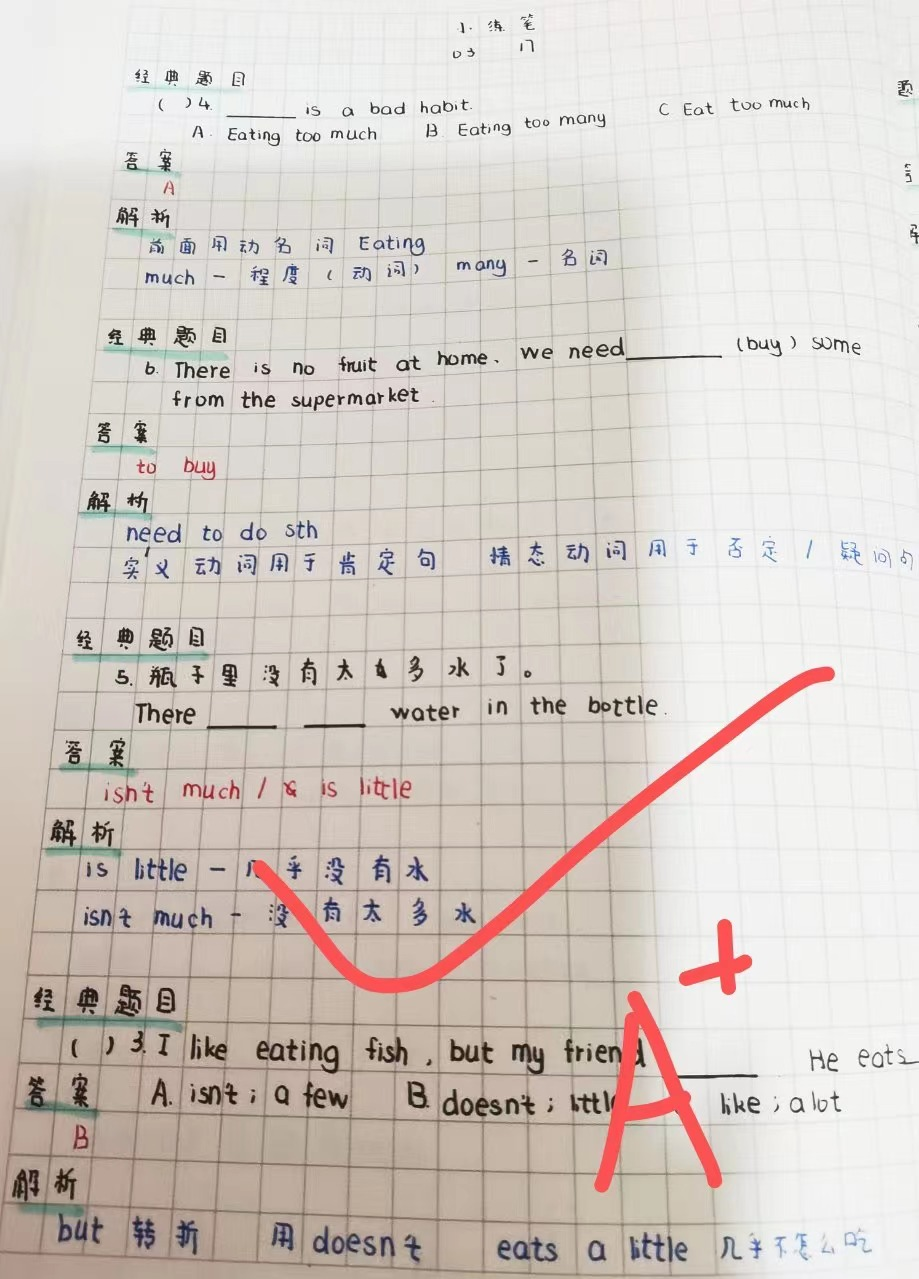 小练笔
03 17
经典题目
( )4. ______ is a bad habit.
A. Eating too much B Eating too many C Eat too much
答案
A
解析
前面用动名词 Eating
much - 程度(动词) many - 名词
经典题目
6. There is no fruit at home. We need ______ (buy) some
from the supermarket.
答案
to buy
解析
need to do sth
实义动词用于肯定句 情态动词用于否定/疑问句
经典题目
5. 瓶子里没有太多水了。
There ______ ______ water in the bottle.
答案
isn't much / is little
解析
is little - 几乎没有水
isn't much - 没有太多水
经典题目
( )3. I like eating fish, but my friend ______. He eats
答案 A. isn't; a few B. doesn't; little like; a lot
B
解析
but 转折 用 doesn't eats a little 几乎不怎么吃
A+